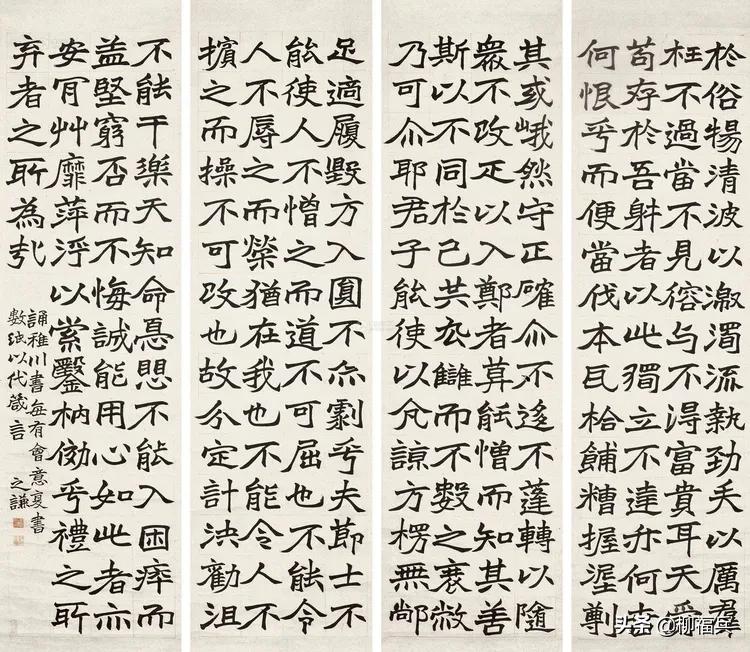 於俗揚清波以激濁流執勁矢以厲羣
枉不過當不見容与不得富貴耳天爵
苟存於吾躬者以此獨立不達亦何苦
何恨乎而便當伐本瓦枱餔糟握渥剸
其或峨然守正確尒不迻不蓬轉以隨
衆不改正以入鄭者莫能憎而知其善
斯以不同於己共仇讎而不數之衰敝
乃可尒耶君子能使以亢諒方楞無鄙
足適履毀方入圓不亦劇乎夫節士不
能使人不憎之而道不可屈也不能令
人不辱之而榮猶在我也不能令人不
擯之而操不可改也故分定計決勸沮
不能干樂天知命憂懼不能入困瘁而
益堅窮否而不悔誠能用心如此者亦
安肎艸靡萍浮以索鑿枘效乎禮之所
弃者之所為哉
誦稚川書每有會意夏書
數紙以代箴言 之謙
头条 @柳福